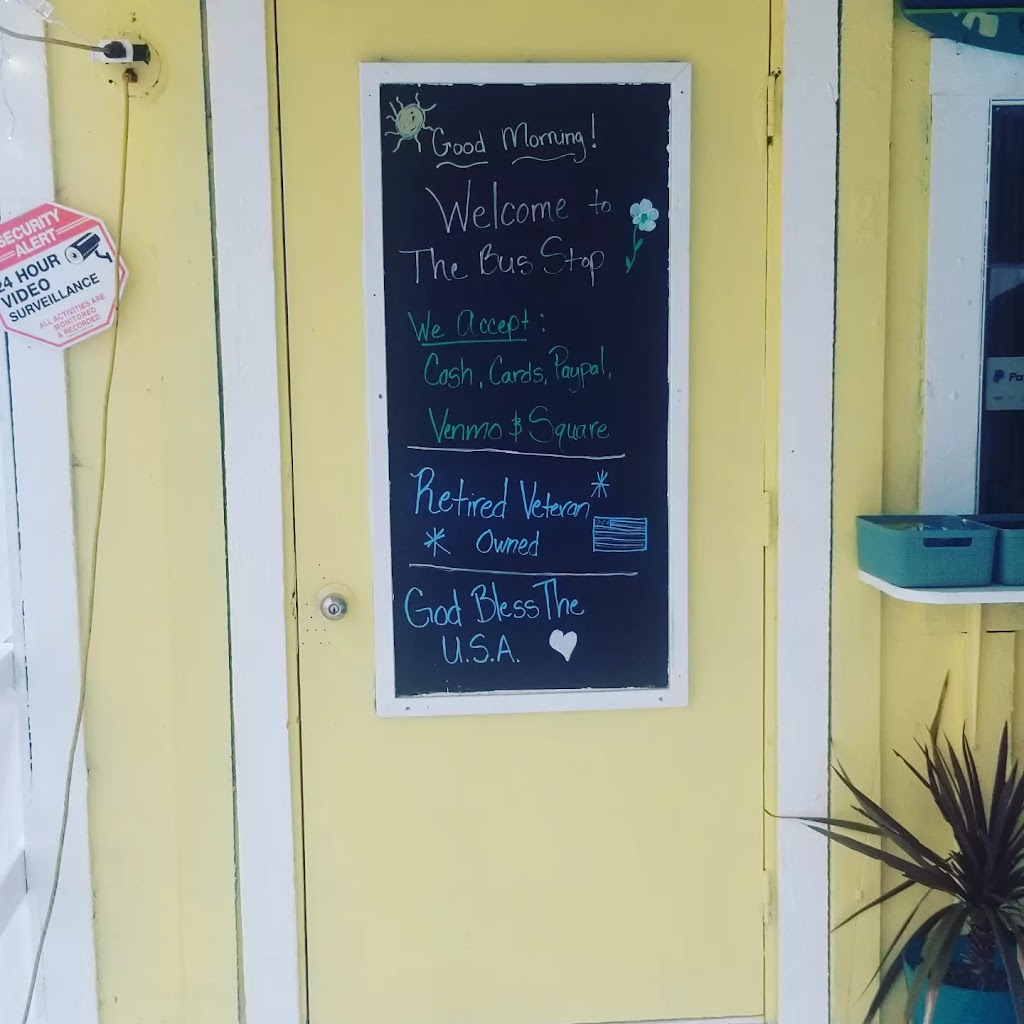 Good Morning!
Welcome to
The Bus Stop
We Accept:
Cash, Cards, Paypal,
Venmo & Square
Retired Veteran
Owned
God Bless The
U.S.A.
SECURITY
ALERT
24 HOUR
VIDEO
SURVEILLANCE
ALL ACTIVITIES ARE
MONITORED
& RECORDED